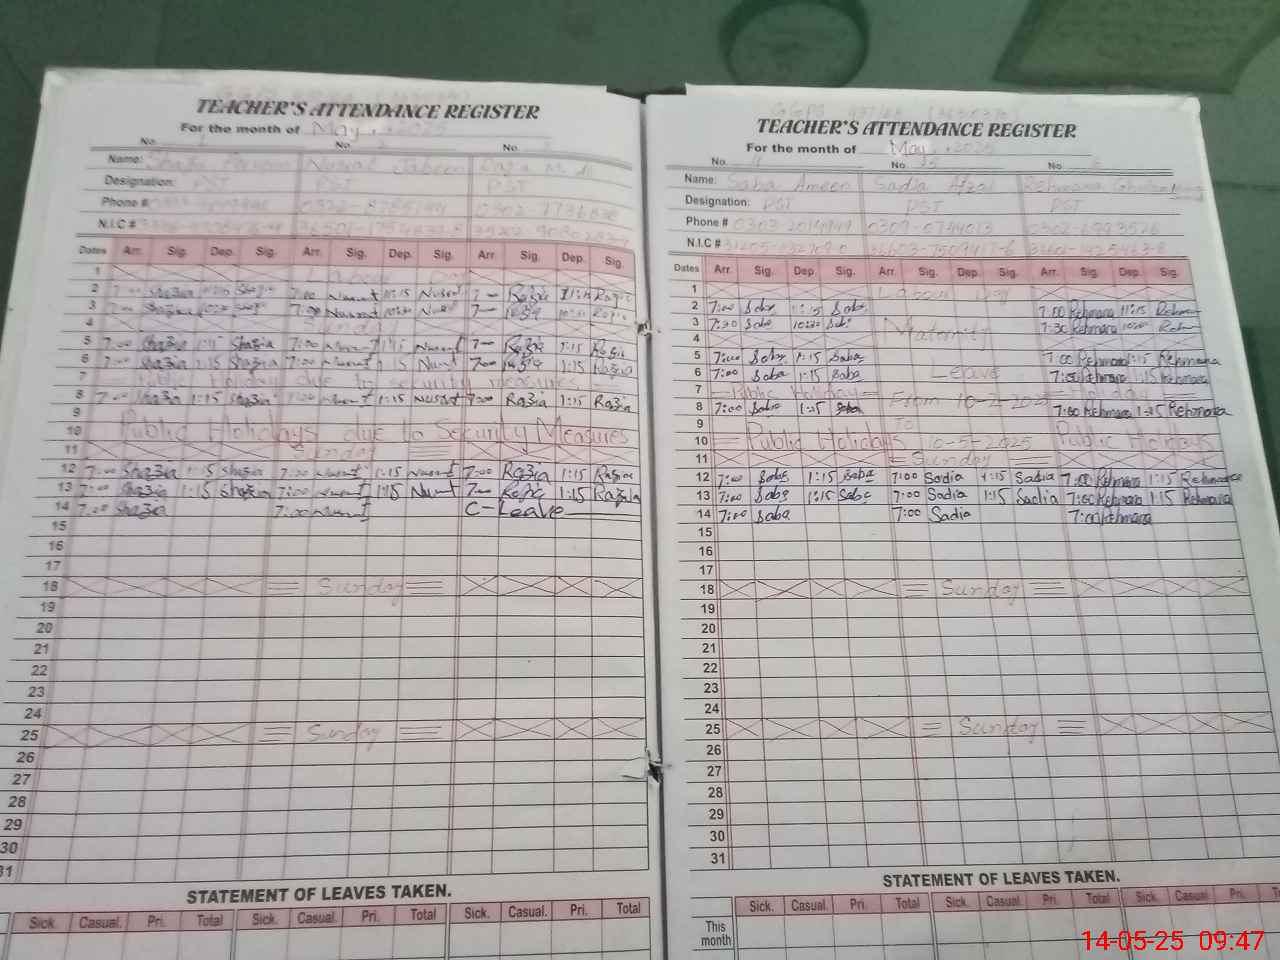 TEACHER'S ATTENDANCE REGISTER
For the month of May, 2025
No. 1 No. 2 No. 3
Name: Shazia Parveen Nusrat Jabeen Razia
Designation: PST PST PST
Phone #
N.I.C #
Dates Arr. Sig. Dep. Sig. Arr. Sig. Dep. Sig. Arr. Sig. Dep. Sig.
1
2 7:00 Shazia Shazia 7:00 Nusrat 11:15 Nusrat 7:00 Razia 11:15 Razia
3 Shazia Shazia Nusrat Nusrat Razia Razia
4 Sunday
5 7:00 Shazia 1:15 Shazia 7:00 Nusrat 1:15 Nusrat 7:00 Razia 1:15 Razia
6 7:00 Shazia 1:15 Shazia 7:00 Nusrat 1:15 Nusrat 7:00 Razia 1:15 Razia
7 Public Holiday due to security measures
8 7:00 Shazia 1:15 Shazia 7:00 Nusrat 1:15 Nusrat 7:00 Razia 1:15 Razia
9
10 Public Holidays due to Security Measures
11 Sunday
12 7:00 Shazia 1:15 Shazia 7:00 Nusrat 1:15 Nusrat 7:00 Razia 1:15 Razia
13 7:00 Shazia 1:15 Shazia 7:00 Nusrat 1:15 Nusrat 7:00 Razia 1:15 Razia
14 7:00 Shazia 7:00 Nusrat C-Leave
15
16
17
18 Sunday
19
20
21
22
23
24
25 Sunday
26
27
28
29
30
31
STATEMENT OF LEAVES TAKEN.
Sick. Casual. Pri. Total Sick. Casual. Pri. Total Sick. Casual. Pri. Total
TEACHER'S ATTENDANCE REGISTER
For the month of May, 2025
No. 4 No. 5 No. 6
Name: Saba Ameen Sadia Afzal Rehmana
Designation: PST PST PST
Phone #
N.I.C #
Dates Arr. Sig. Dep. Sig. Arr. Sig. Dep. Sig. Arr. Sig. Dep. Sig.
1 Labour Day
2 7:00 Saba 11:15 Saba 7:00 Rehmana 11:15 Rehmana
3 7:30 Saba 10:30 Saba Maternity 7:30 Rehmana Rehmana
4
5 7:00 Saba 1:15 Saba 7:00 Rehmana 1:15 Rehmana
6 7:00 Saba 1:15 Saba Leave 7:00 Rehmana 1:15 Rehmana
7 Public Holiday Holiday
8 7:00 Saba 1:15 Saba From 10-2-2025 7:00 Rehmana 1:15 Rehmana
9 To
10 Public Holidays 10-5-2025 Public Holidays
11 Sunday
12 7:00 Saba 1:15 Saba 7:00 Sadia 1:15 Sadia 7:00 Rehmana 1:15 Rehmana
13 7:00 Saba 1:15 Saba 7:00 Sadia 1:15 Sadia 7:00 Rehmana 1:15 Rehmana
14 7:00 Saba 7:00 Sadia 7:00 Rehmana
15
16
17
18 Sunday
19
20
21
22
23
24
25 Sunday
26
27
28
29
30
31
STATEMENT OF LEAVES TAKEN.
Sick. Casual. Pri. Total Sick. Casual. Pri. Total Sick. Casual. Pri.
This month
14-05-25 09:47